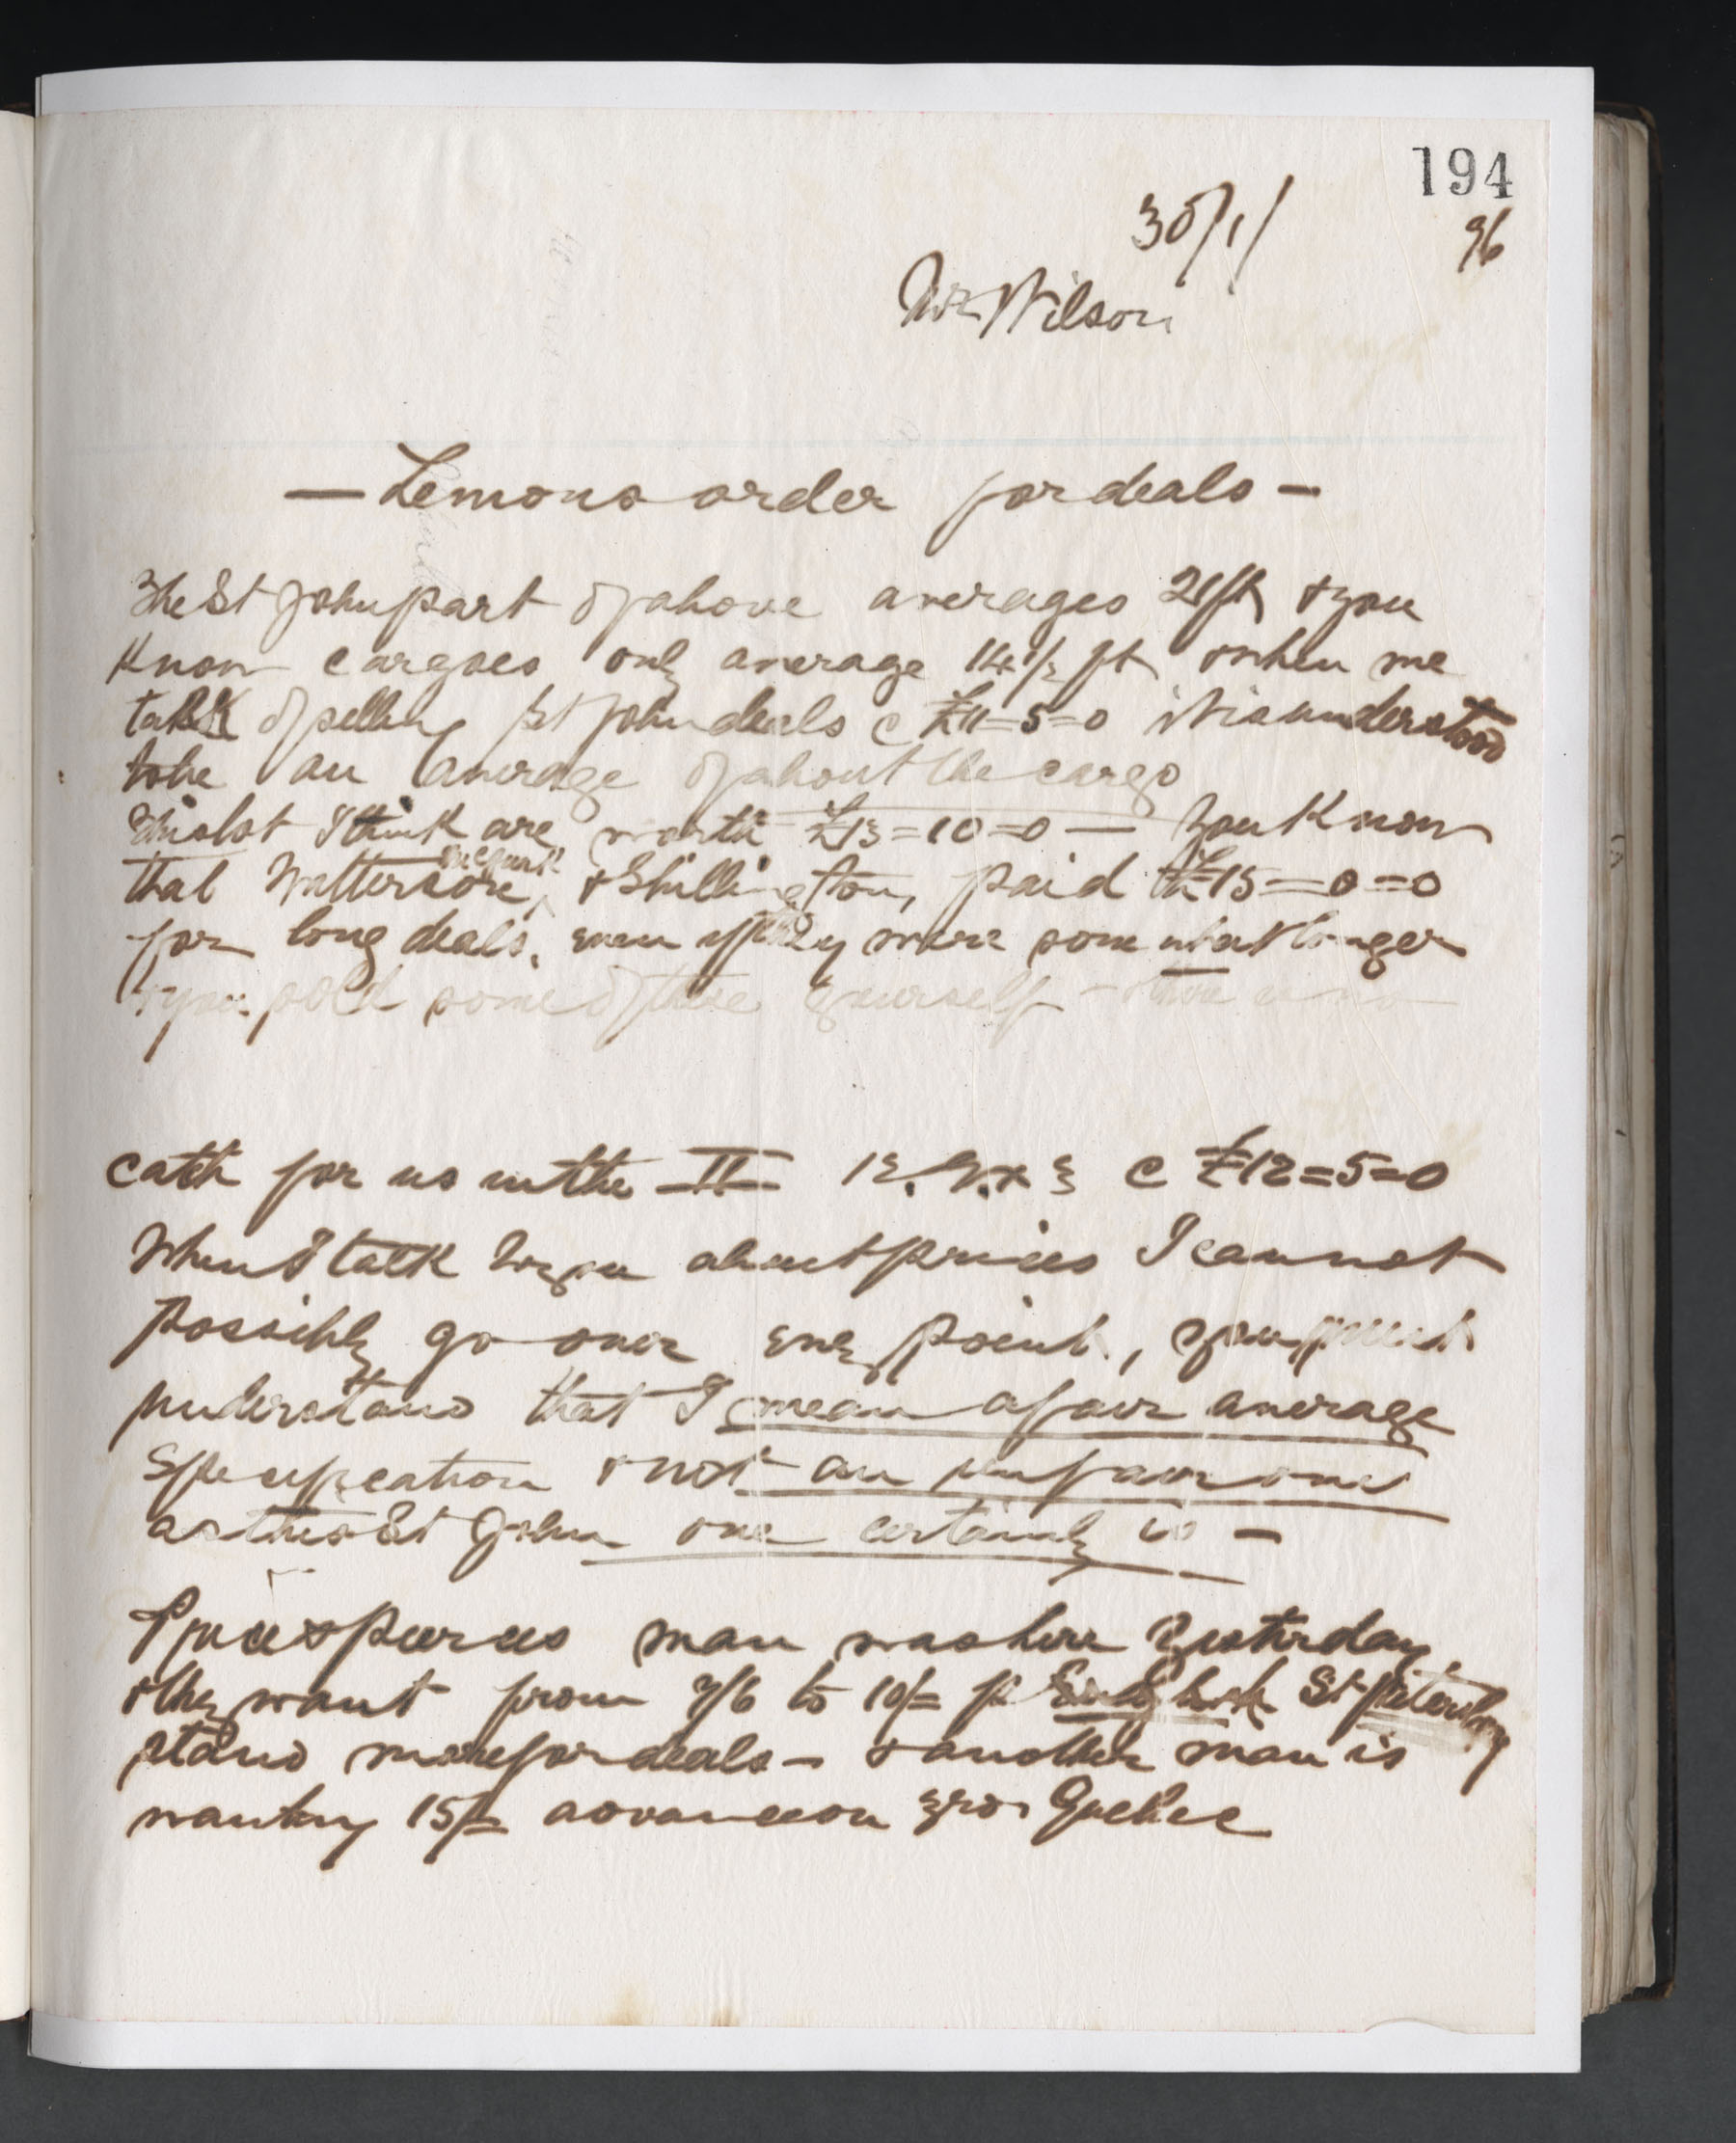 194
30/1/ 96
Mr Wilson
— Lemons order for deals —
The St John part of above averages 21ft & you
know cargoes only average 14 1/2 ft & when we
talk of selling St John deals @ £11=5=0 it is understood
to be an average of about the cargo
Whilst I think are worth £13=10=0 — You know
that Watterson, & Shillington, paid £15=0=0
for long deals, even if they were some what longer
& you sold some of these yourself —
catch for us with the II 12.9.x 3 @ £12=5=0
When I talk to you about prices I cannot
possibly go over every point, & you must
understand that I mean a fair average
specification & not an unfair one
as this St John one certainly is —
Price & Pierces man was here yesterday
& they want from 7/6 to 10/= p English St Petersburg
stand more for deals — & another man is
wanting 15/= advance on Quebec